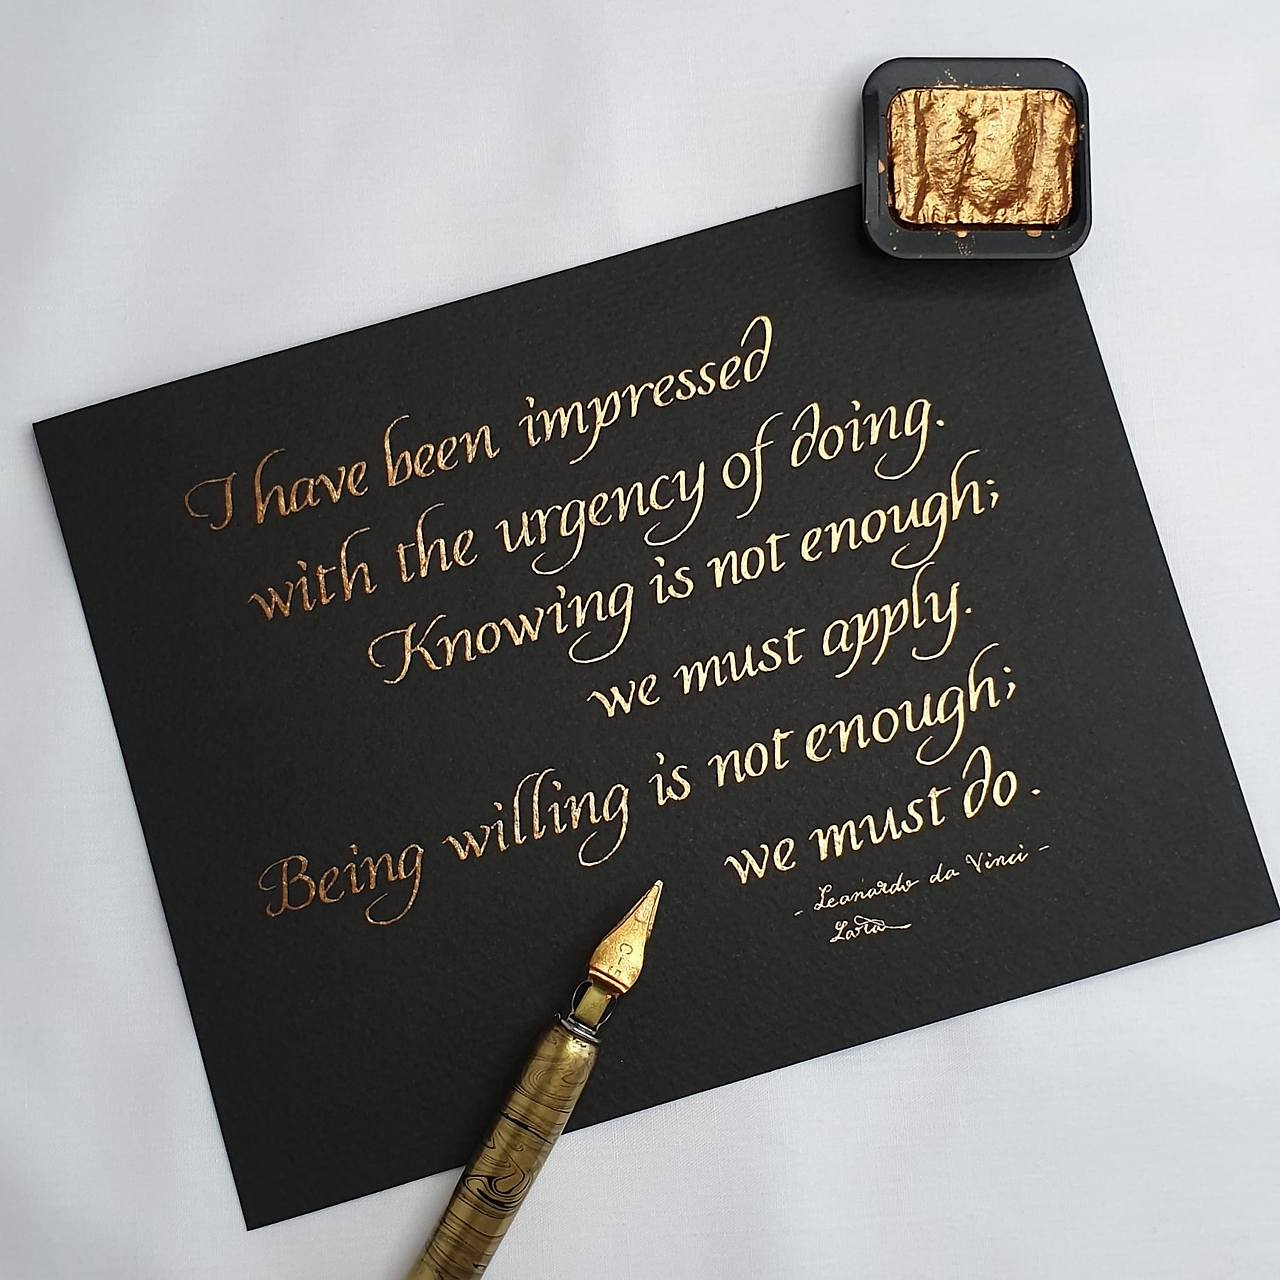 I have been impressed
with the urgency of doing.
Knowing is not enough;
we must apply.
Being willing is not enough;
we must do.
- Leonardo da Vinci -
Lara